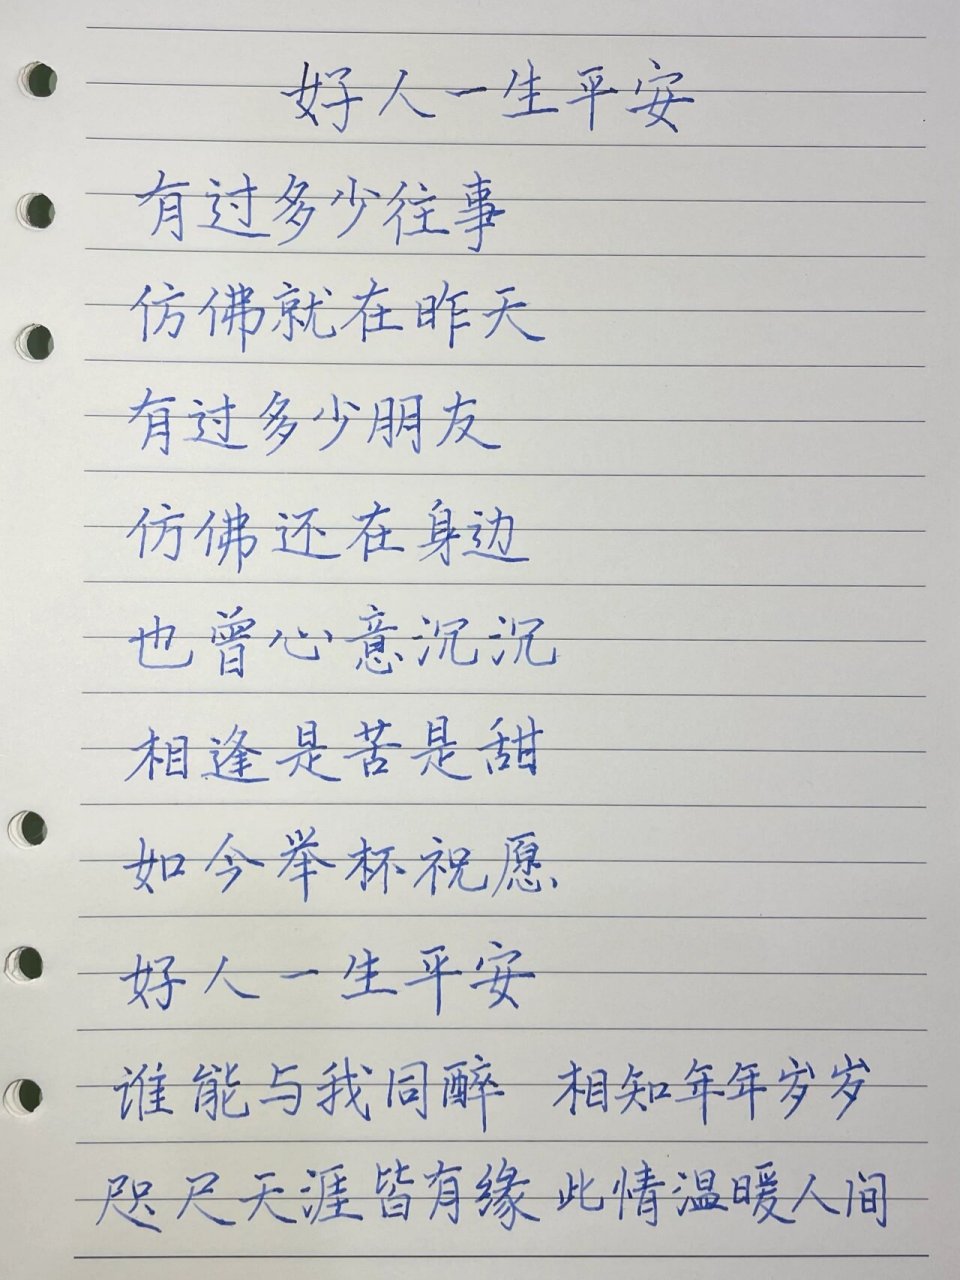 好人一生平安
有过多少往事
仿佛就在昨天
有过多少朋友
仿佛还在身边
也曾心意沉沉
相逢是苦是甜
如今举杯祝愿
好人一生平安
谁能与我同醉 相知年年岁岁
咫尺天涯皆有缘 此情温暖人间